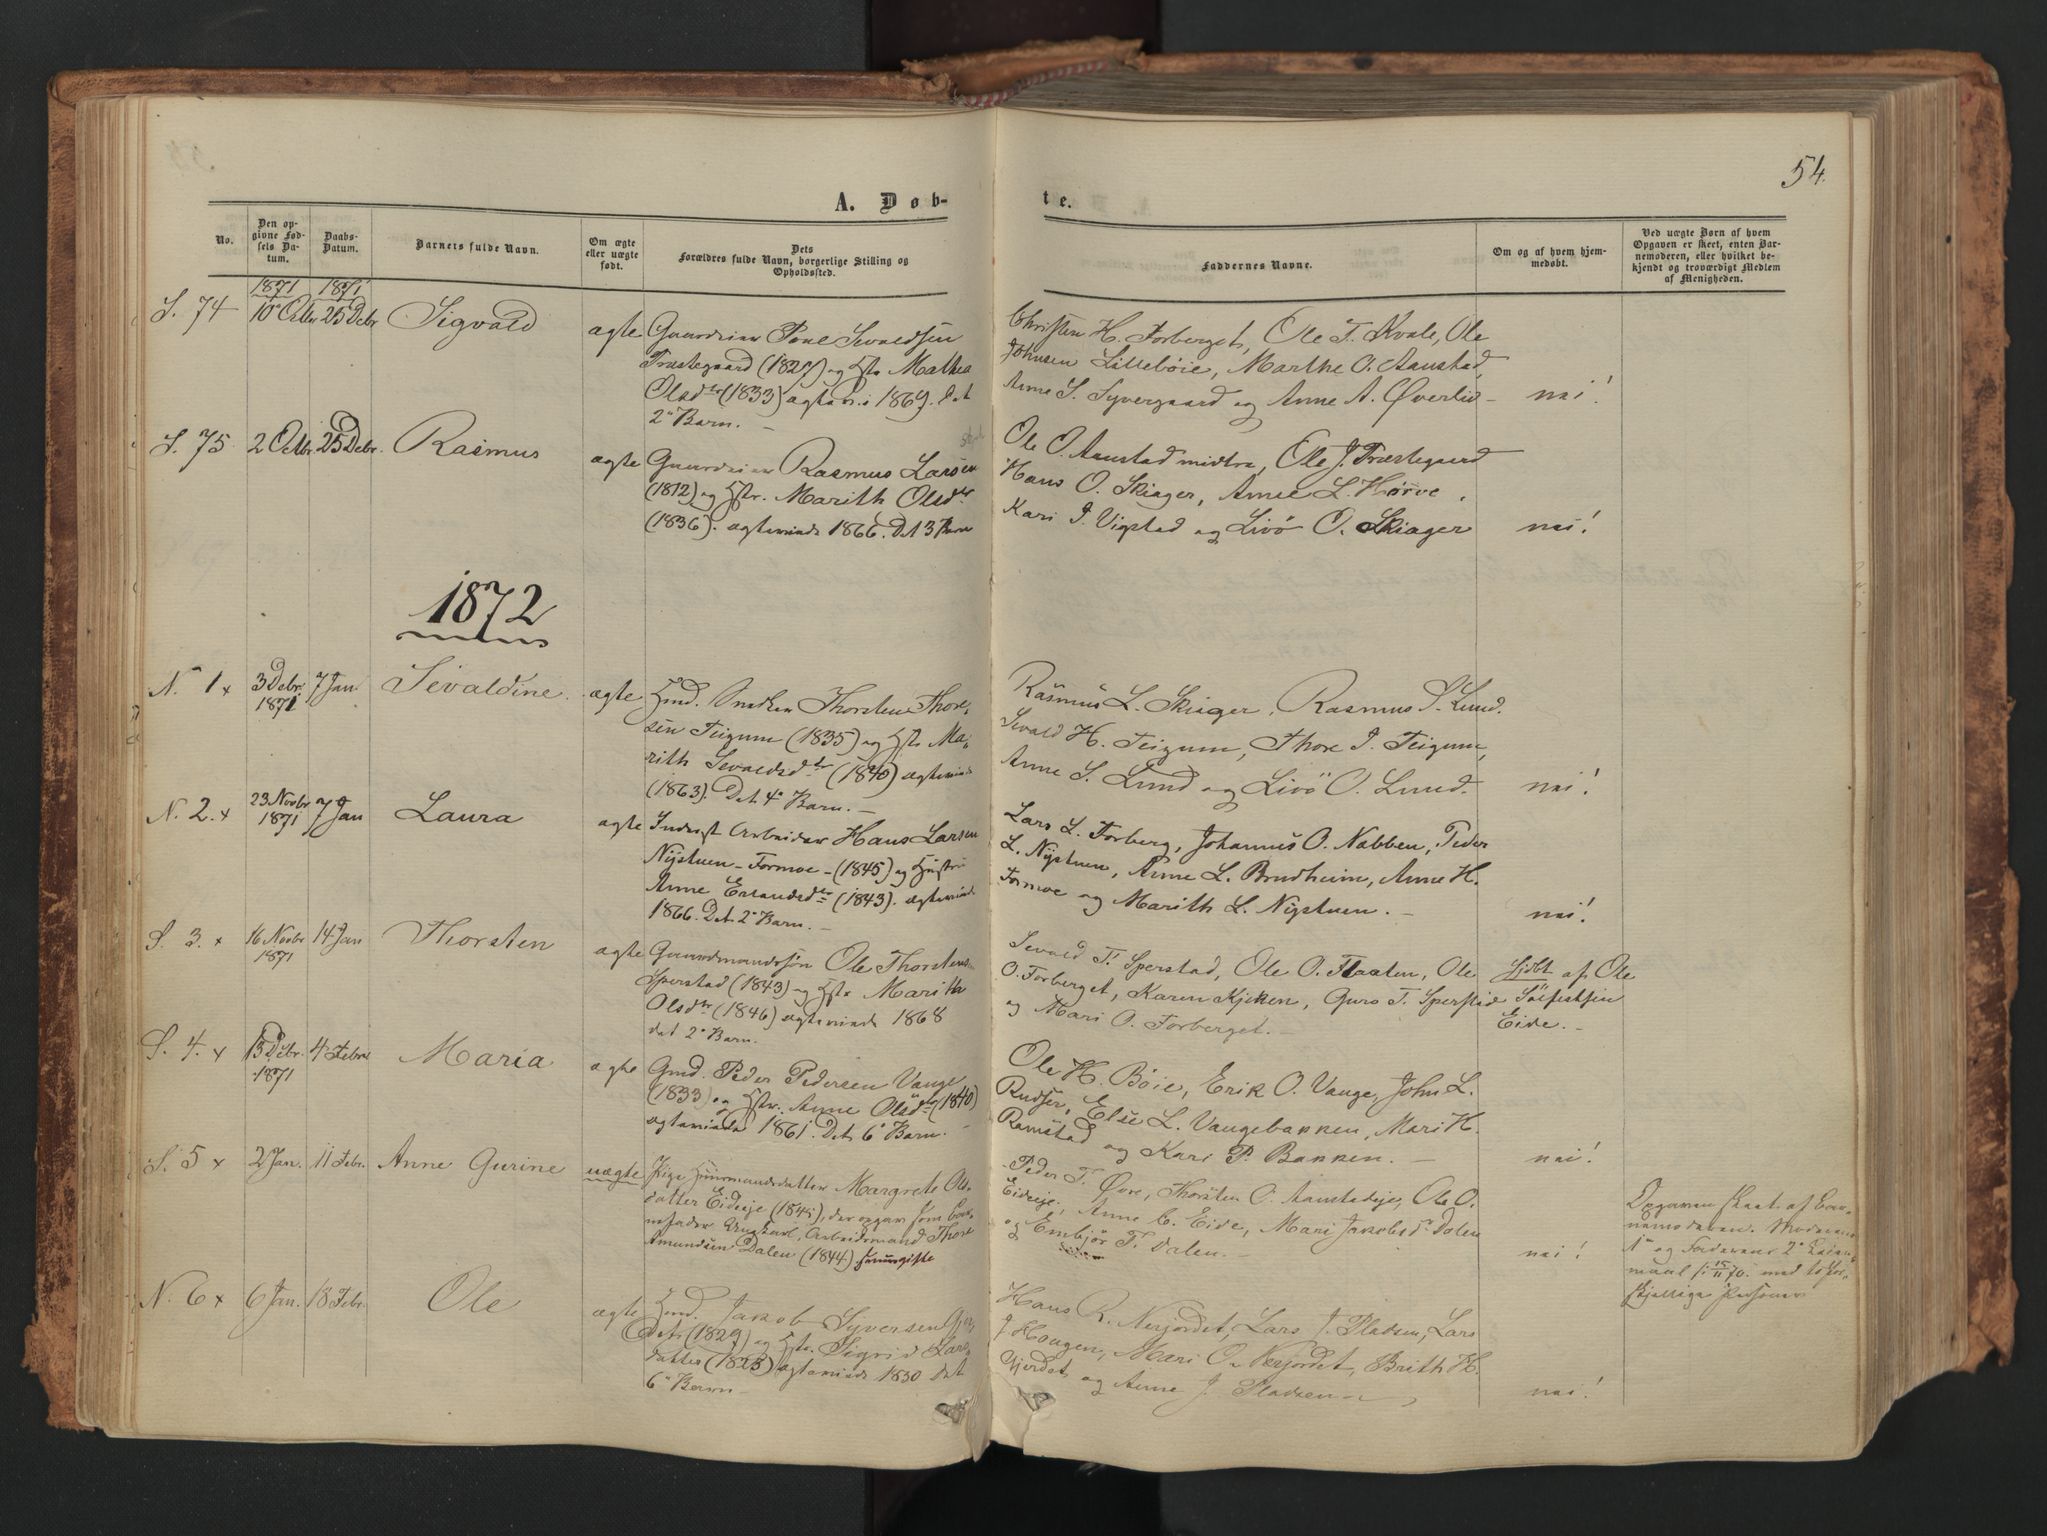 54.
A. Døb-
te.
No.
Den op-
givne Fød-
sels Da-
tum.
Daabs-
Datum.
Barnets fulde Navn.
Om ægte
eller uægte
født.
Dets
Forældres fulde Navn, borgerlige Stilling og
Opholdssted.
Faddernes Navne.
Om og af hvem hjem-
medøbt.
Ved uægte Børn af hvem
Opgaven er skeet, enten Bar-
nemoderen, eller hvilket be-
kjendt og troværdigt Medlem
af Menigheden.
1871 1871
S. 74 10 Octbr 25 Debr Sigvald ægte
Gaardeier Poul Sevaldsen
Træstegaard (1827) og Hstr Mathea
Olsdtr (1833) ægtev. i 1869. Det
2° Barn. —
Christen H. Forberget, Ole T. Kvale, Ole
Johnsen Lillebøie, Marthe O. Aanstad,
Anne S. Syvergaard og Anne A. Øverliv — nei!
S. 75. 2 Octbr. 25 Debr. Rasmus ægte
Gaardeier Rasmus Larsen
(1812) og Hstr. Marith Olsdtr
(1836). ægteviede 1866. Det 3 Barn
Ole O. Aanstad midtre, Ole J. Træstegaard
Hans O. Skiager, Anne L. Hørve,
Kari J. Vigstad og Livö O. Skiager nei!
1872
N. 1 x 3 Debr. 1871 7 Jan. Sevaldine. ægte
Hmd. Thorsten Thore-
sen Teigum (1835) og Hstr Ma-
rith Sevaldsdtr (1840) ægteviede
(1863). Det 4° Barn. —
Rasmus L. Skiager, Rasmus S. Lund.
Sevald H. Teigum, Thore J. Teigum,
Anne S. Lund og Livö O. Lund. nei!
N. 2. x 23 Novbr 1871 7 Jan Laura ægte
Inderst Arbeider Hans Larsen
Nystuen-Formoe — (1845) og Hustru
Anne Erlandsdtr (1843). ægteviede
1866. Det 2° Barn. —
Lars L. Forberg, Johannes O. Nabben, Peder
L. Nystuen, Anne L. Brudheim, Anne H.
Formoe og Marith L. Nystuen. — nei!
S. 3. x 16 Novbr 1871 14 Jan Thorsten ægte
Gaardmandssøn Ole Thorstensen
Sperstad (1843) og Hstr Marith
Olsdtr (1846) ægteviede 1868
det 2° Barn.
Sevald T. Sperstad, Ole O. Flaaten, Ole
O. Forberget, Karen Kjeken, Guro T. Sperstad
og Mari O. Forberget. —
Hjdbt af Ole
Sölfestsen
Eide. —
S. 4. x 13 Debr. 1871 4 Febr Maria ægte
Gmd. Peder Pedersen Vange
(1833) og Hstr. Anne Olsdtr (1840)
ægteviede 1861. Det 6° Barn. —
Ole H. Böie, Erik O. Vange, John L.
Rudser, Else L. Vangebakken, Mari H.
Ramstad og Kari P. Bakken. — nei!
S. 5 x 2 Jan. 11 Febr. Anne Gurine uægte
Pige Huusmandsdatter Margrete Ols-
datter Eideeje (1845), der opgav som Bar-
nefader Ungkarl, Arbeidsmand Thore
Amundsen Dalen (1844)
Peder T. Øvre, Thorsten O. Aanstadeje, Ole O.
Eideeje, Anne C. Eide, Mari Jakobsdtr Dalen
og Embjør T. Dalen. — nei!
Opgaven skeet af Bar-
nemoderen. Moderens
1° og Faderens 2° Leier-
maal med tofor-
skjellige Personer
N. 6 x 6 Jan. 18 Febr. Ole ægte
Hmd. Jakob Syversen Gjer-
det (1829) og Hstr. Sigrid Lars-
datter (1823) ægteviede 1850 det
6° Barn —
Hans R. Nerjordet, Lars J. Pladsen, Lars
J Haugen, Mari O. Nerjordet, Brith H.
Gjerdet og Anne J. Pladsen — nei!